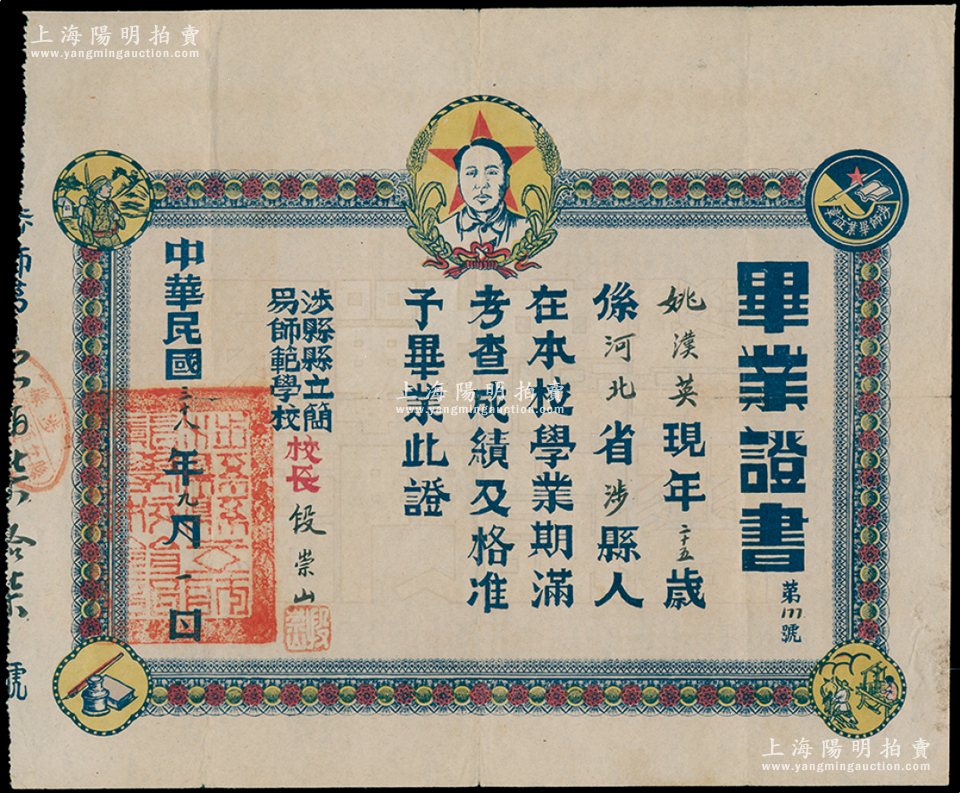 上海陽明拍賣
www.yangmingauction.com
畢業證書
第177號
姚漢英現年二十五歲
係河北省涉縣人
在本校學業期滿
考查成績及格准
予畢業此證
涉縣縣立簡
易師範學校
校長
段崇山
中華民國三十八年九月一日
號
上海陽明拍賣
www.yangmingauction.com
上海陽明拍賣
www.yangmingauction.com